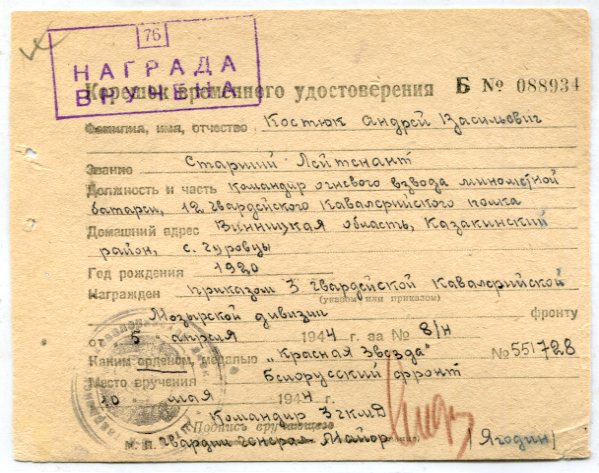 76
НАГРАДА
ВРУЧЕНА
Корешок временного удостоверения Б № 088934
Фамилия, имя, отчество Костюк Андрей Васильевич
Звание Старший Лейтенант
Должность и часть командир огневого взвода минометной
батареи, 12 Гвардейского Кавалерийского полка
Домашний адрес Винницкая область, Казакинский
район, с. Гуровцы
Год рождения 1920
Награжден приказом 3 Гвардейской Кавалерийской
(указом или приказом)
Мозырской дивизии фронту
от 5 апреля 1944 г. за № 8/н
Каким орденом, медалью „Красная Звезда" № 551728
Место вручения Белорусский фронт
10 мая 1944 г.
Командир 3 гкмд
Подпись вручающего
М. П. Гвардии генерал Майор (Ягодин)